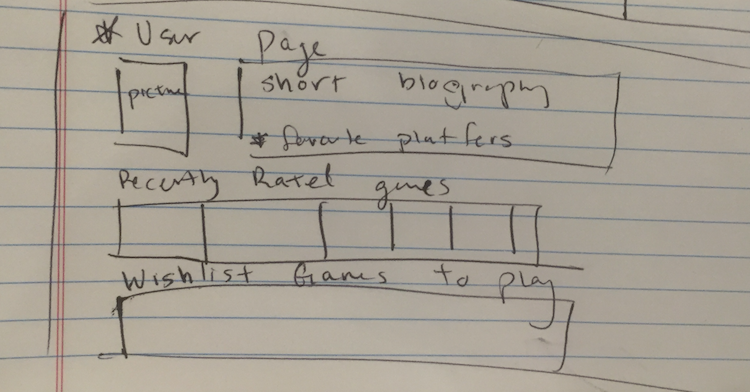 * User Page
picture
short biography
* favorite platfers
Recently Rated games
Wishlist Games to play